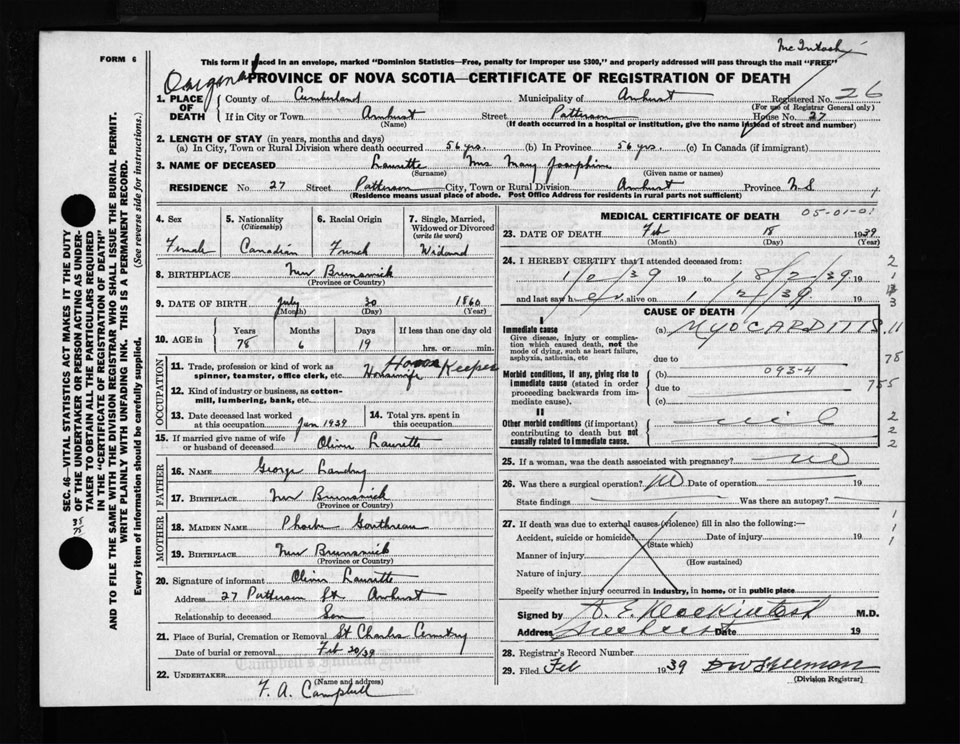 McIntosh
FORM 6
This form if placed in an envelope, marked "Dominion Statistics—Free, penalty for improper use $300," and properly addressed will pass through the mail "FREE"
Original
PROVINCE OF NOVA SCOTIA—CERTIFICATE OF REGISTRATION OF DEATH
1. PLACE OF DEATH { County of Cumberland Municipality of Amherst Registered No. 26
(For use of Registrar General only)
If in City or Town Amherst Street Patterson House No. 27
(Name) (If death occurred in a hospital or institution, give the name instead of street and number)
2. LENGTH OF STAY (in years, months and days)
(a) In City, Town or Rural Division where death occurred 56 yrs. (b) In Province 56 yrs. (c) In Canada (if immigrant)
3. NAME OF DECEASED Laurette Mrs Mary Josephine
(Surname) (Given name or names)
RESIDENCE No. 27 Street Patterson City, Town or Rural Division Amherst Province N S
(Residence means usual place of abode. Post Office Address for residents in rural parts not sufficient)
4. Sex Female
5. Nationality (Citizenship) Canadian
6. Racial Origin French
7. Single, Married, Widowed or Divorced (write the word) Widowed
8. BIRTHPLACE New Brunswick
(Province or Country)
9. DATE OF BIRTH July 30 1860
(Month) (Day) (Year)
10. AGE in Years 78 Months 6 Days 19 If less than one day old hrs. or min.
OCCUPATION
11. Trade, profession or kind of work as spinner, teamster, office clerk, etc. Housewife House Keeper
12. Kind of industry or business, as cotton-mill, lumbering, bank, etc.
13. Date deceased last worked at this occupation Jan 1939
14. Total yrs. spent in this occupation
15. If married give name of wife or husband of deceased Oliver Laurette
FATHER
16. NAME George Landry
17. BIRTHPLACE New Brunswick
(Province or Country)
MOTHER
18. MAIDEN NAME Phoebe
19. BIRTHPLACE New Brunswick
(Province or Country)
20. Signature of informant Oliver Laurette
Address 27 Patterson St Amherst
Relationship to deceased Son
21. Place of Burial, Cremation or Removal St Charles Cemetery
Date of burial or removal Feb 20/39
Campbell's Funeral Home
22. UNDERTAKER F. A. Campbell
(Name and address)
MEDICAL CERTIFICATE OF DEATH 05-01-01
23. DATE OF DEATH Feb 18 1939
(Month) (Day) (Year)
24. I HEREBY CERTIFY that I attended deceased from:
1/2/39 19 to 18/2/39 19
and last saw her alive on 1/2/39 19
CAUSE OF DEATH
I
Immediate cause
Give disease, injury or complication which caused death, not the mode of dying, such as heart failure, asphyxia, asthenia, etc
(a) MYOCARDITIS
due to
Morbid conditions, if any, giving rise to immediate cause (stated in order proceeding backwards from immediate cause).
(b) 093-4
due to
(c)
II
Other morbid conditions (if important) contributing to death but not causally related to immediate cause.
nil
2
1
3
11
78
755
2
2
2
25. If a woman, was the death associated with pregnancy? no
26. Was there a surgical operation? no Date of operation 19
State findings Was there an autopsy?
27. If death was due to external causes (violence) fill in also the following:—
Accident, suicide or homicide? Date of injury 19
(State which)
Manner of injury
(How sustained)
Nature of injury
Specify whether injury occurred in industry, in home, or in public place
1
1
1
Signed by A. E. Mackintosh M.D.
Address Amherst Date 19
28. Registrar's Record Number
29. Filed Feb 1939
(Division Registrar)
SEC. 46—VITAL STATISTICS ACT MAKES IT THE DUTY
OF THE UNDERTAKER OR PERSON ACTING AS UNDERTAKER TO OBTAIN ALL THE PARTICULARS REQUIRED
IN THE "CERTIFICATE OF REGISTRATION OF DEATH"
AND TO FILE THE SAME WITH THE DIVISION REGISTRAR WHO SHALL ISSUE THE BURIAL PERMIT.
WRITE PLAINLY WITH UNFADING INK. THIS IS A PERMANENT RECORD.
Every item of information should be carefully supplied. (See reverse side for instructions.)